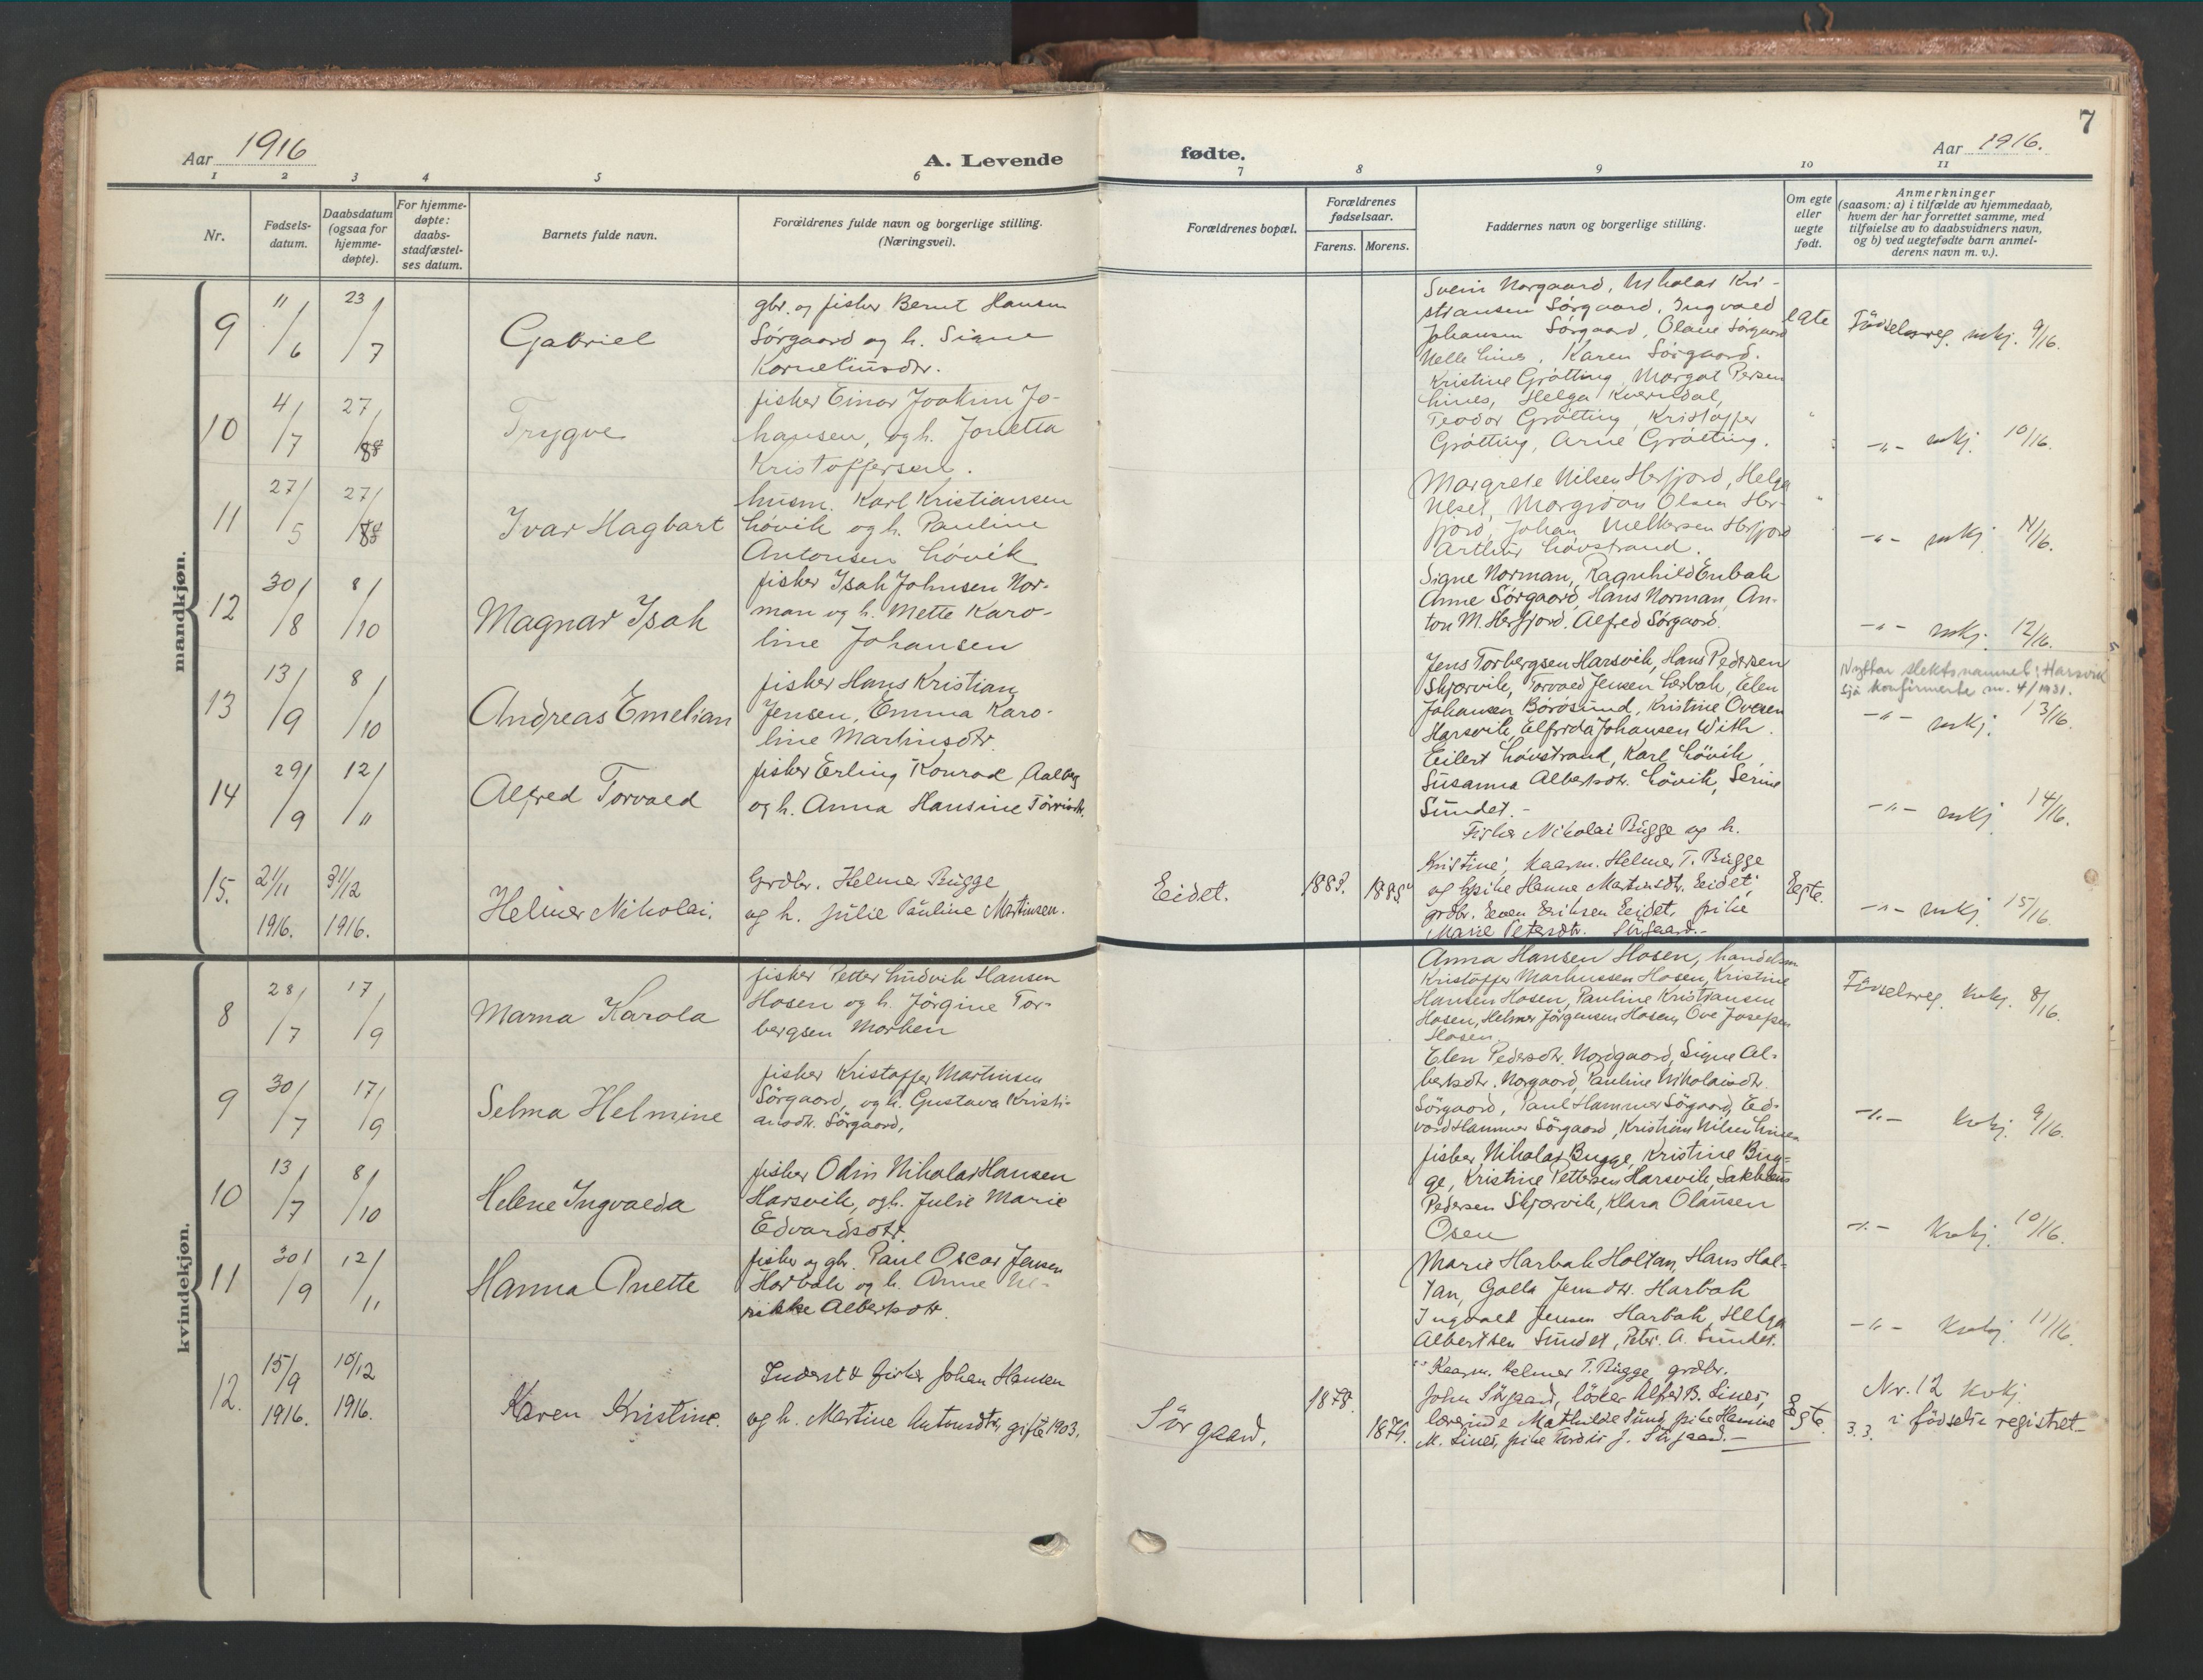 7
Aar 1916
A. Levende
fødte.
Aar 1916.
1 2 3 4 5 6 7 8 9 10 11
Nr.
Fødsels-
datum.
Daabsdatum
(ogsaa for
hjemme-
døpte).
For hjemme-
døpte:
daabs-
stadfæstel-
ses datum.
Barnets fulde navn.
Forældrenes fulde navn og borgerlige stilling.
(Næringsvei).
Forældrenes bopæl.
Forældrenes
fødselsaar.
Farens. Morens.
Faddernes navn og borgerlige stilling.
Om egte
eller
uegte
født.
Anmerkninger
(saasom: a) i tilfælde av hjemmedaab,
hvem der har forrettet samme, med
tilføielse av to daabsvidners navn,
og b) ved uegtefødte barn anmel-
derens navn m. v.).
mandkjøn.
9 11/6 23/7 Gabriel
gbr. og fisker Bernt Hansen
Sörgaard og h. Signe
Korneliusdtr.
Svein Norgaard, Nikolai Kri-
stiansen Sörgaard, Ingvald
Johansen Sörgaard, Olave Sörgaard
Nelle Lines, Karen Sörgaard.
egte
Födselsreg. mkj. 9/16.
10 4/7 27/8 Trygve
fisker Einar Joakim Jo-
hansen, og h. Jonetta
Kristoffersen.
Kristine Gråtting, Margot Persen
Lines, Helga Kverndal,
Teodor Gråtting, Kristoffer
Gråtting, Arne Gråtting.
"
-"- mkj. 10/16.
11 27/5 27/8 Ivar Hagbart
husm. Karl Kristiansen
Lövik og h. Pauline
Antonsen Lövik
Margrete Nilsen Herfjord, Helga
Neset, Margidan Olsen Her-
fjord, Johan Melkersen Herfjord
Arthur Lövstrand.
"
-"- mkj. 11/16.
12 30/8 8/10 Magnar Isak
fisker Isak Johnsen Nor-
man og h. Mette Karo-
line Johansen
Signe Norman, Ragnhild Enbak
Anne Sörgaard, Hans Norman, An-
ton M. Herfjord, Alfred Sörgaard.
-"- mkj. 12/16.
13 13/9 8/10 Andreas Emelian
fisker Hans Kristian
Jensen, Emma Karo-
line Martinsdtr.
Jens Torbergsen Harsvik, Hans Pedersen
Skjærvik, Torvald Jensen Lerbak, Elen
Johansen Börösund, Kristine Ovesen
Harsvik, Elfrida Johansen With.
Nyttar slektsnamnet: Harsvik
sjå konfirmerte nr. 4/1931.
-"- mkj. 13/16.
14 29/9 12/11 Alfred Torvald
fisker Erling Konrad Aalberg
og h. Anna Hansine
Eilert Lövstrand, Karl Lövik,
Susanna Albertsdtr. Lövik, Serine
Sundet.-
-"- mkj 14/16.
15. 21/11 1916. 31/12 1916. Helmer Nikolai.
Grdbr. Helmer Bugge
og h. Julie Pauline Martinsen.
Eidet. 1883. 1885
Fisker Nikolai Bugge og h.
Kristine; kaarm. Helmer T. Bugge
og pike Hanne Martinsdtr. Eidet;
grdbr. Even Eriksen Eidet, pike
Marie Petersdtr. Sörgaard.-
Egte.
-"- mkj 15/16.
kvindekjøn.
8 28/7 17/9 Marna Karola
fisker Petter Ludvik Hansen
Hosen og h. Jörgine Tor-
bergsen Morken
Anna Hansen Hosen, handelsm
Kristoffer Markussen Hosen, Kristine
Hansen Hosen, Pauline Kristiansen
Hosen, Helmer Jörgensen Hosen, Ove Josefsen
Hosen
Födselsreg. kvkj. 8/16.
9 30/7 17/9 Selma Helmine
fisker Kristoffer Martinsen
Sörgaard, og h. Gustava Kristi-
ansdtr. Sörgaard,
Elen Pedersdtr. Nordgaard, Signe Al-
bertsdtr. Norgaard, Pauline Nikolaisdtr.
Sörgaard, Paul Hammer Sögaard, Ed-
vard Hammer Sörgaard, Kristian Nilsen Lines
-"- kvkj. 9/16.
10 13/7 8/10 Helene Ingvalda
fisker Odin Nikolai Hansen
Harsvik, og h. Julie Marie
Edvardsdtr.
fisker Nikolai Bugge, Kristine Bug-
ge, Kristine Pettersen Harsvik, Sakkeus
Pedersen Skjærvik, Klara Olausen
Osen
-"- kvkj. 10/16.
11 30/9 12/11 Hanna Anette
fisker og gbr. Paul Oscar Jensen
Harbak og h. Anne Ul-
rikke Albertsdtr.
Marie Harbak Holtan, Hans Hol-
tan, Golla Jensdtr. Harbak
Ingvald Jensen Harbak, Helga
Albertsen Sundet, Peter A. Sundet.
-"- kvkj. 11/16.
12. 15/9 1916. 10/12 1916. Karen Kristine.
Inderst & fisker Johan Hansen
og h. Martine Antonsdtr, gifte 1903.
Sörgaard. 1878. 1879.
Kaarm. Helmer T. Bugge, grdbr.
John Sörgaard, lösker Alfred B. Lines,
lærerinde Mathilde Sund, pike Hansine
M. Lines, pike Tordis J. Sörgaard.-
Egte.
Nr. 12 kvkj.
i födsels registret
3.3.